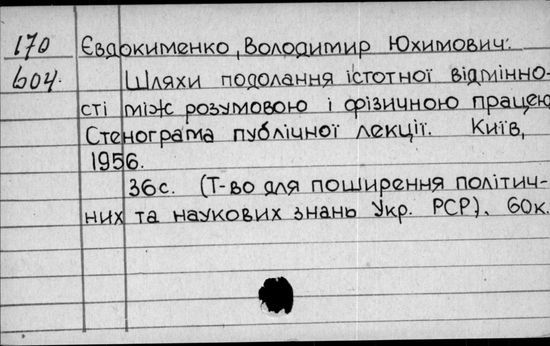 170 Євдокименко, Володимир Юхимович.
604. Шляхи подолання істотної відмінно-
сті між розумовою і фізичною працею
Стенограма публічної лекції. Київ,
1956.
36с. (Т-во для поширення політич-
них та наукових знань Укр. РСР). 60к.